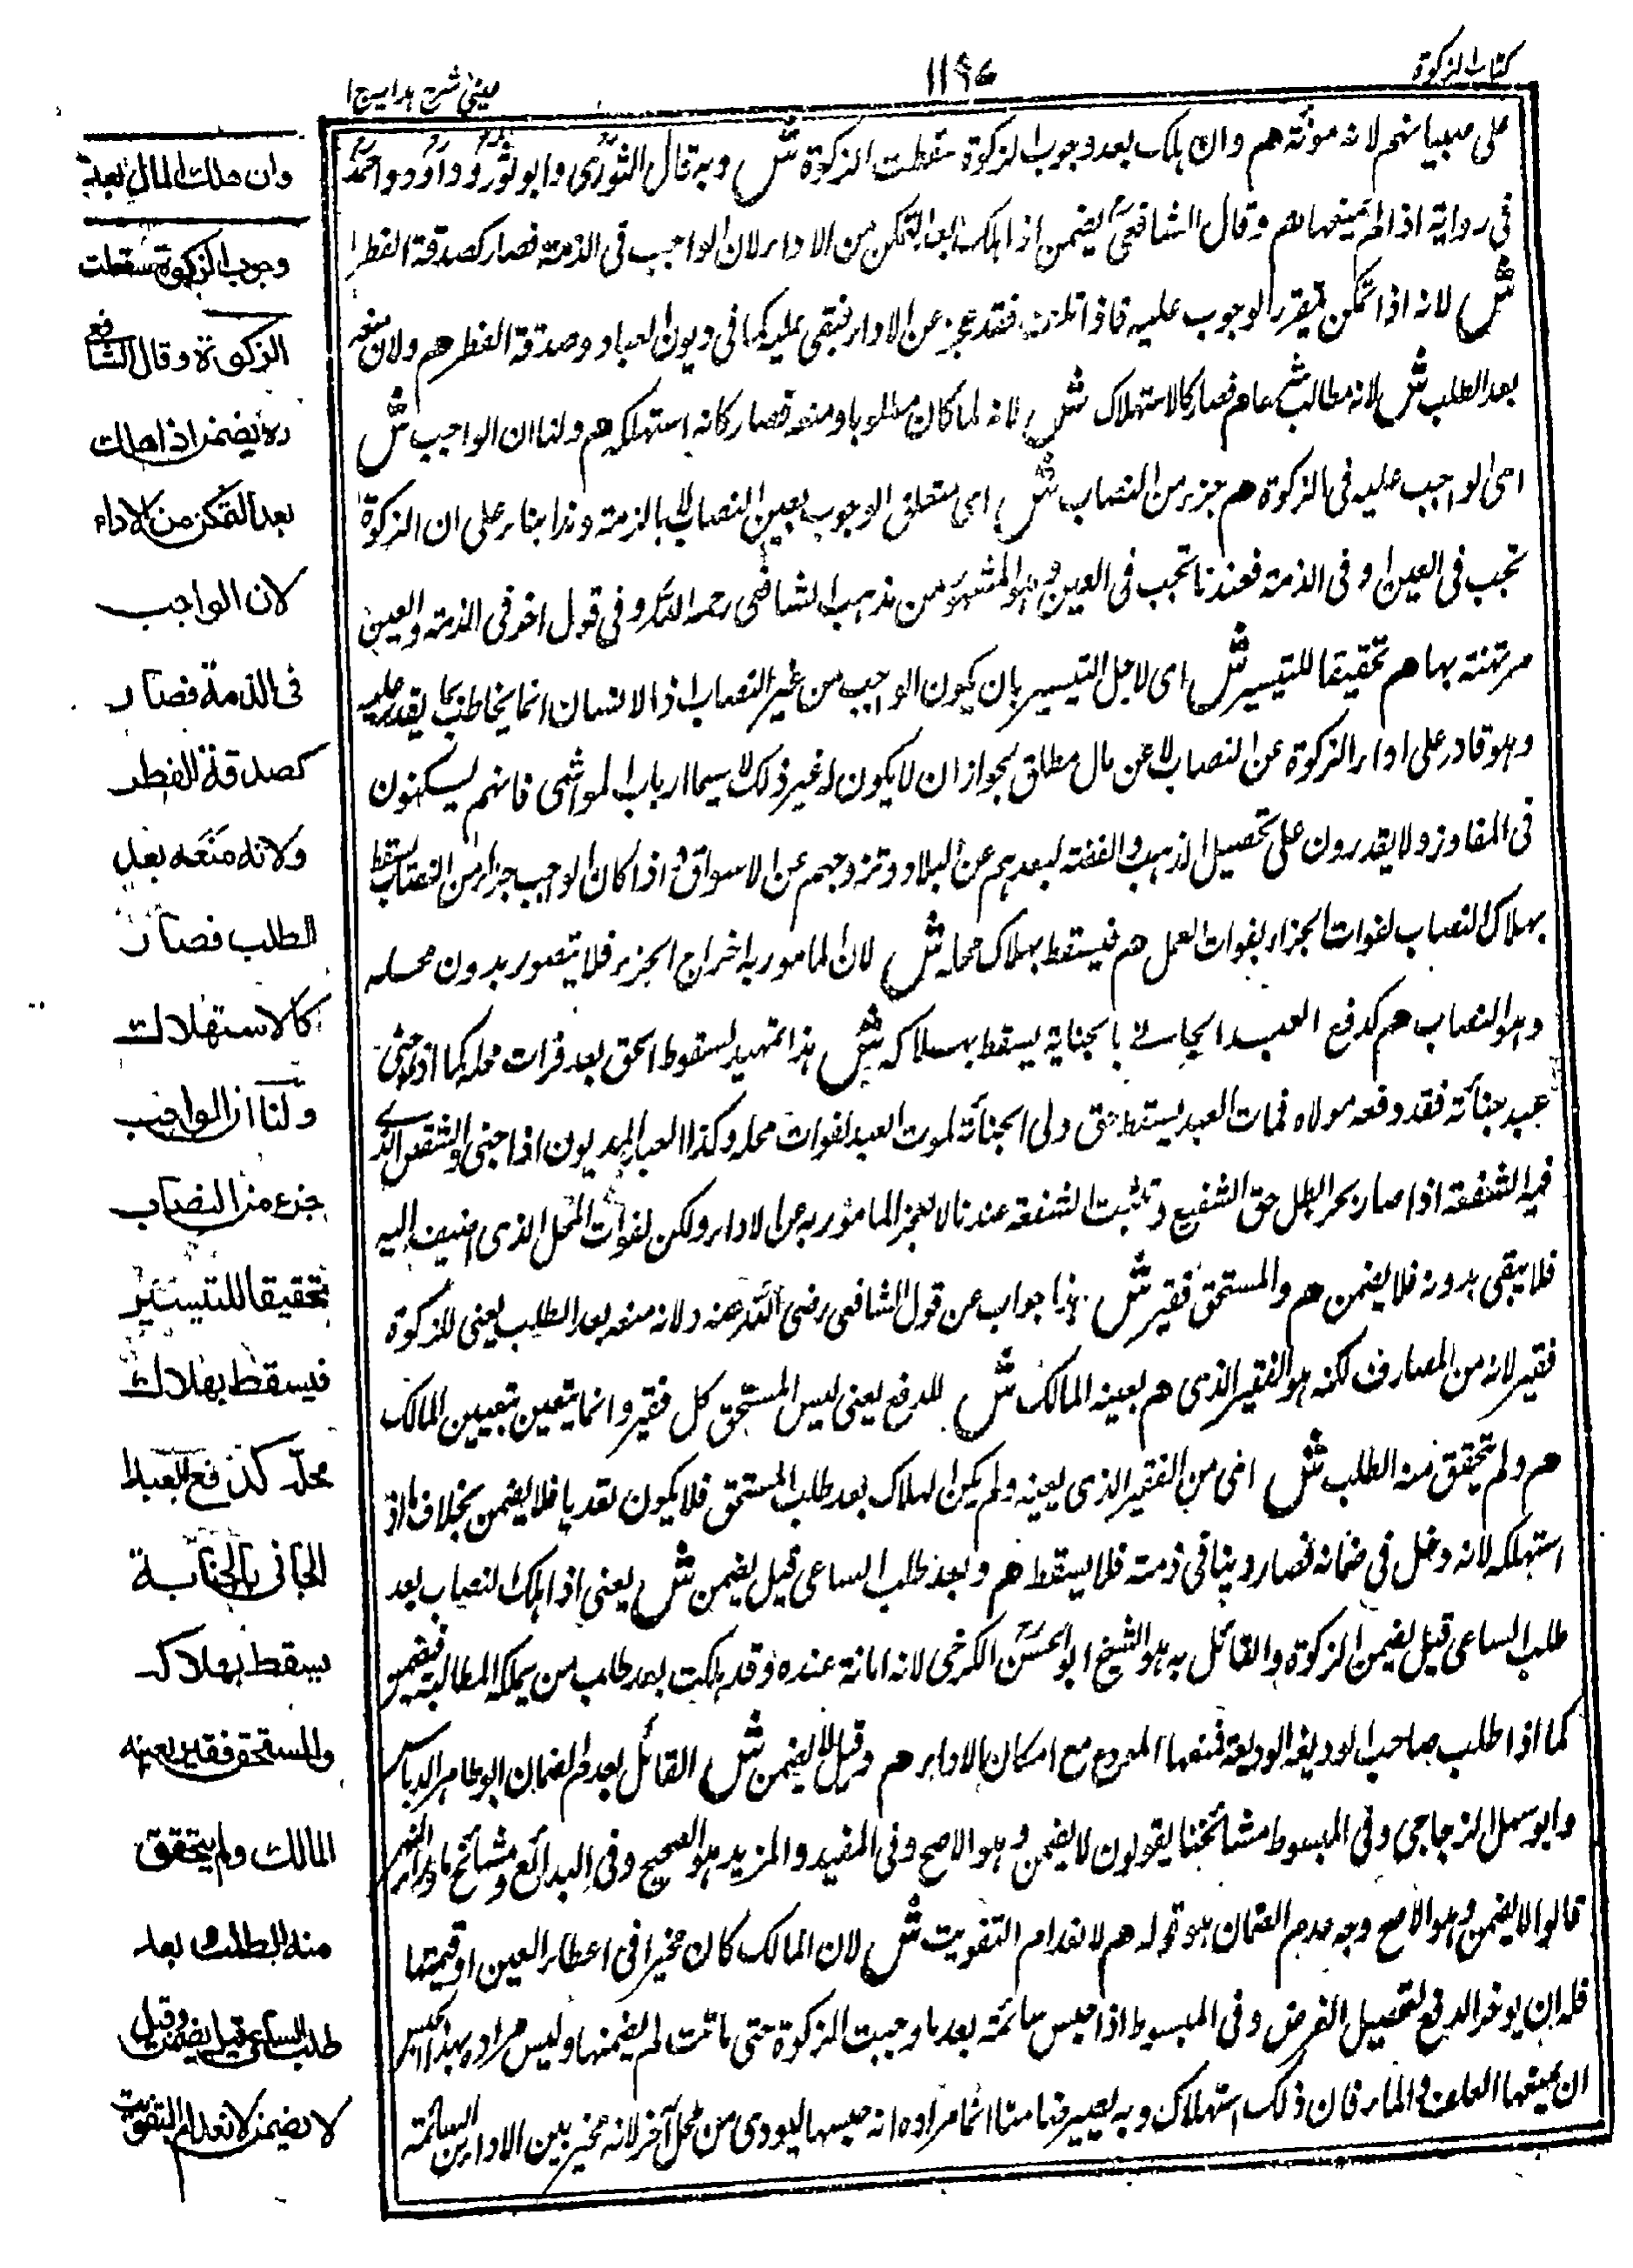 كتاب الزكوة
١١٩٤
عيني شرح هداية ج ا
على صبيانهم لانه مونة هم وان هلك بعد وجوب الزكوة سقطت الزكوة ش وبه قال الثوري وابو ثور وداود واحمد
في رواية اذا لم يمنعها هم وقال الشافعي يضمن اذا هلك بعد التمكن من الاداء لان الواجب في الذمة فصار كصدقة الفطر
ش لانه اذا تمكن تقرر الوجوب عليه فاذا تلف فقد عجز عن الاداء فبقي عليه كما في ديون العباد وصدقة الفطر هم ولان منعه
بعد الطلب ش لانه مطالب شرعا هم فصار كالاستهلاك ش لانه لما كان مطلوبا ومنعه فصار كانه استهلكه هم ولنا ان الواجب ش
اى الواجب عليه في الزكوة هم جزء من النصاب ش اى متعلق الوجوب بعين النصاب لا بالذمة وهذا بناء على ان الزكوة
تجب في العين او في الذمة فعندنا تجب في العين وهو المشهور من مذهب الشافعي رحمه الله وفي قول اخر في الذمة والعين
مرتهنة بها هم تحقيقا للتيسير ش اى لاجل التيسير بان يكون الواجب من غير النصاب اذ الانسان انما يخاطب بما يقدر عليه
وهو قادر على اداء الزكوة عن النصاب لا عن مال مطلق بجواز ان لا يكون له غير ذلك لا سيما ارباب المواشي فانهم يسكنون
في المفاوز ولا يقدرون على تحصيل الذهب والفضة لبعدهم عن البلاد وتزوجهم عن الاسواق واذا كان الواجب جزاء من النصاب يسقط
بهلاك النصاب لفوات الجزاء بفوات العمل هم فيسقط بهلاك محله ش لان المامور به اخراج الجزء فلا يتصور بدون محله
وهو النصاب هم كدفع العبد الجاني بالجناية يسقط بهلاكه ش هذا تمهيد لسقوط الحق بعد فوات محله كما اذا جنى
عبد جناية فقد دفعه مولاه فمات العبد يسقط حق ولى الجناية لموت العبد لفوات محله وكذا العبد المديون اذا جنى والشقص الذى
فيه الشفعة اذا صار بحرا بطل حق الشفيع وتثبت الشفعة عندنا لا بعجز المامور به عن الاداء ولكن لفوات المحل الذى اضيف اليه
فلا يبقى بدونه فلا يضمن هم والمستحق فقير ش هذا جواب عن قول الشافعي رضي الله عنه ولانه منعه بعد الطلب يعنى للزكوة
فقير لانه من المصارف لكنه هو الفقير الذى هم يعينه المالك ش للدفع يعنى ليس المستحق كل فقير وانما يتعين بتعيين المالك
هم ولم يتحقق منه الطلب ش اى من الفقير الذى يعينه ولم يكن الهلاك بعد طلب المستحق فلا يكون تعديا فلا يضمن بخلاف ما اذا
استهلكه لانه دخل في ضمانه فصار دينا في ذمته فلا يسقط هم وبعد طلب الساعى قيل يضمن ش يعنى اذا هلك النصاب بعد
طلب الساعى قيل يضمن الزكوة والقائل به هو الشيخ ابو الحسن الكرخى لانه امانة عنده وقد هلكت بعد طلب من يملك المطالبة فيضمن
كما اذا طلب صاحب الوديعة الوديعة فمنعها المودع مع امكان الاداء هم وقيل لا يضمن ش القائل بعدم الضمان ابو طاهر الدباس
وابو سهل الزجاجى وفي المبسوط مشائخنا يقولون لا يضمن وهو الاصح وفي المفيد والمزيد هو الصحيح وفي البدائع ومشائخ ماوراء النهر
قالوا لا يضمن وهو الاصح وجه عدم الضمان هو قوله هم لانعدام التفويت ش لان المالك كان مخيرا في اعطاء العين او قيمتها
فله ان يوخر الدفع لتحصيل الغرض وفي المبسوط اذا حبس سائمة بعد ما وجبت الزكوة حتى ماتت لم يضمنها وليس مراده بهذا الحبس
ان يمنعها العلف والماء فان ذلك استهلاك وبه يصير ضامنا انما مراده انه حبسها ليودى من محل آخر لانه مخير بين الاداء من السائمة
وان هلك المال بعد
وجوب الزكوة سقطت
الزكوة وقال الشافع
ره يضمن اذا هلك
بعد التمكن من الاداء
لان الواجب
في الذمة فصار
كصدقة الفطر
ولانه منعه بعد
الطلب فصار
كالاستهلاك
ولنا ان الواجب
جزء من النصاب
تحقيقا للتيسير
فيسقط بهلاك
محله كدفع العبد
الجانى بالجناية
يسقط بهلاكه
والمستحق فقير يعينه
المالك ولم يتحقق
منه الطلب وبعد
طلب الساعى قيل يضمن وقيل
لا يضمن لانعدام التفويت